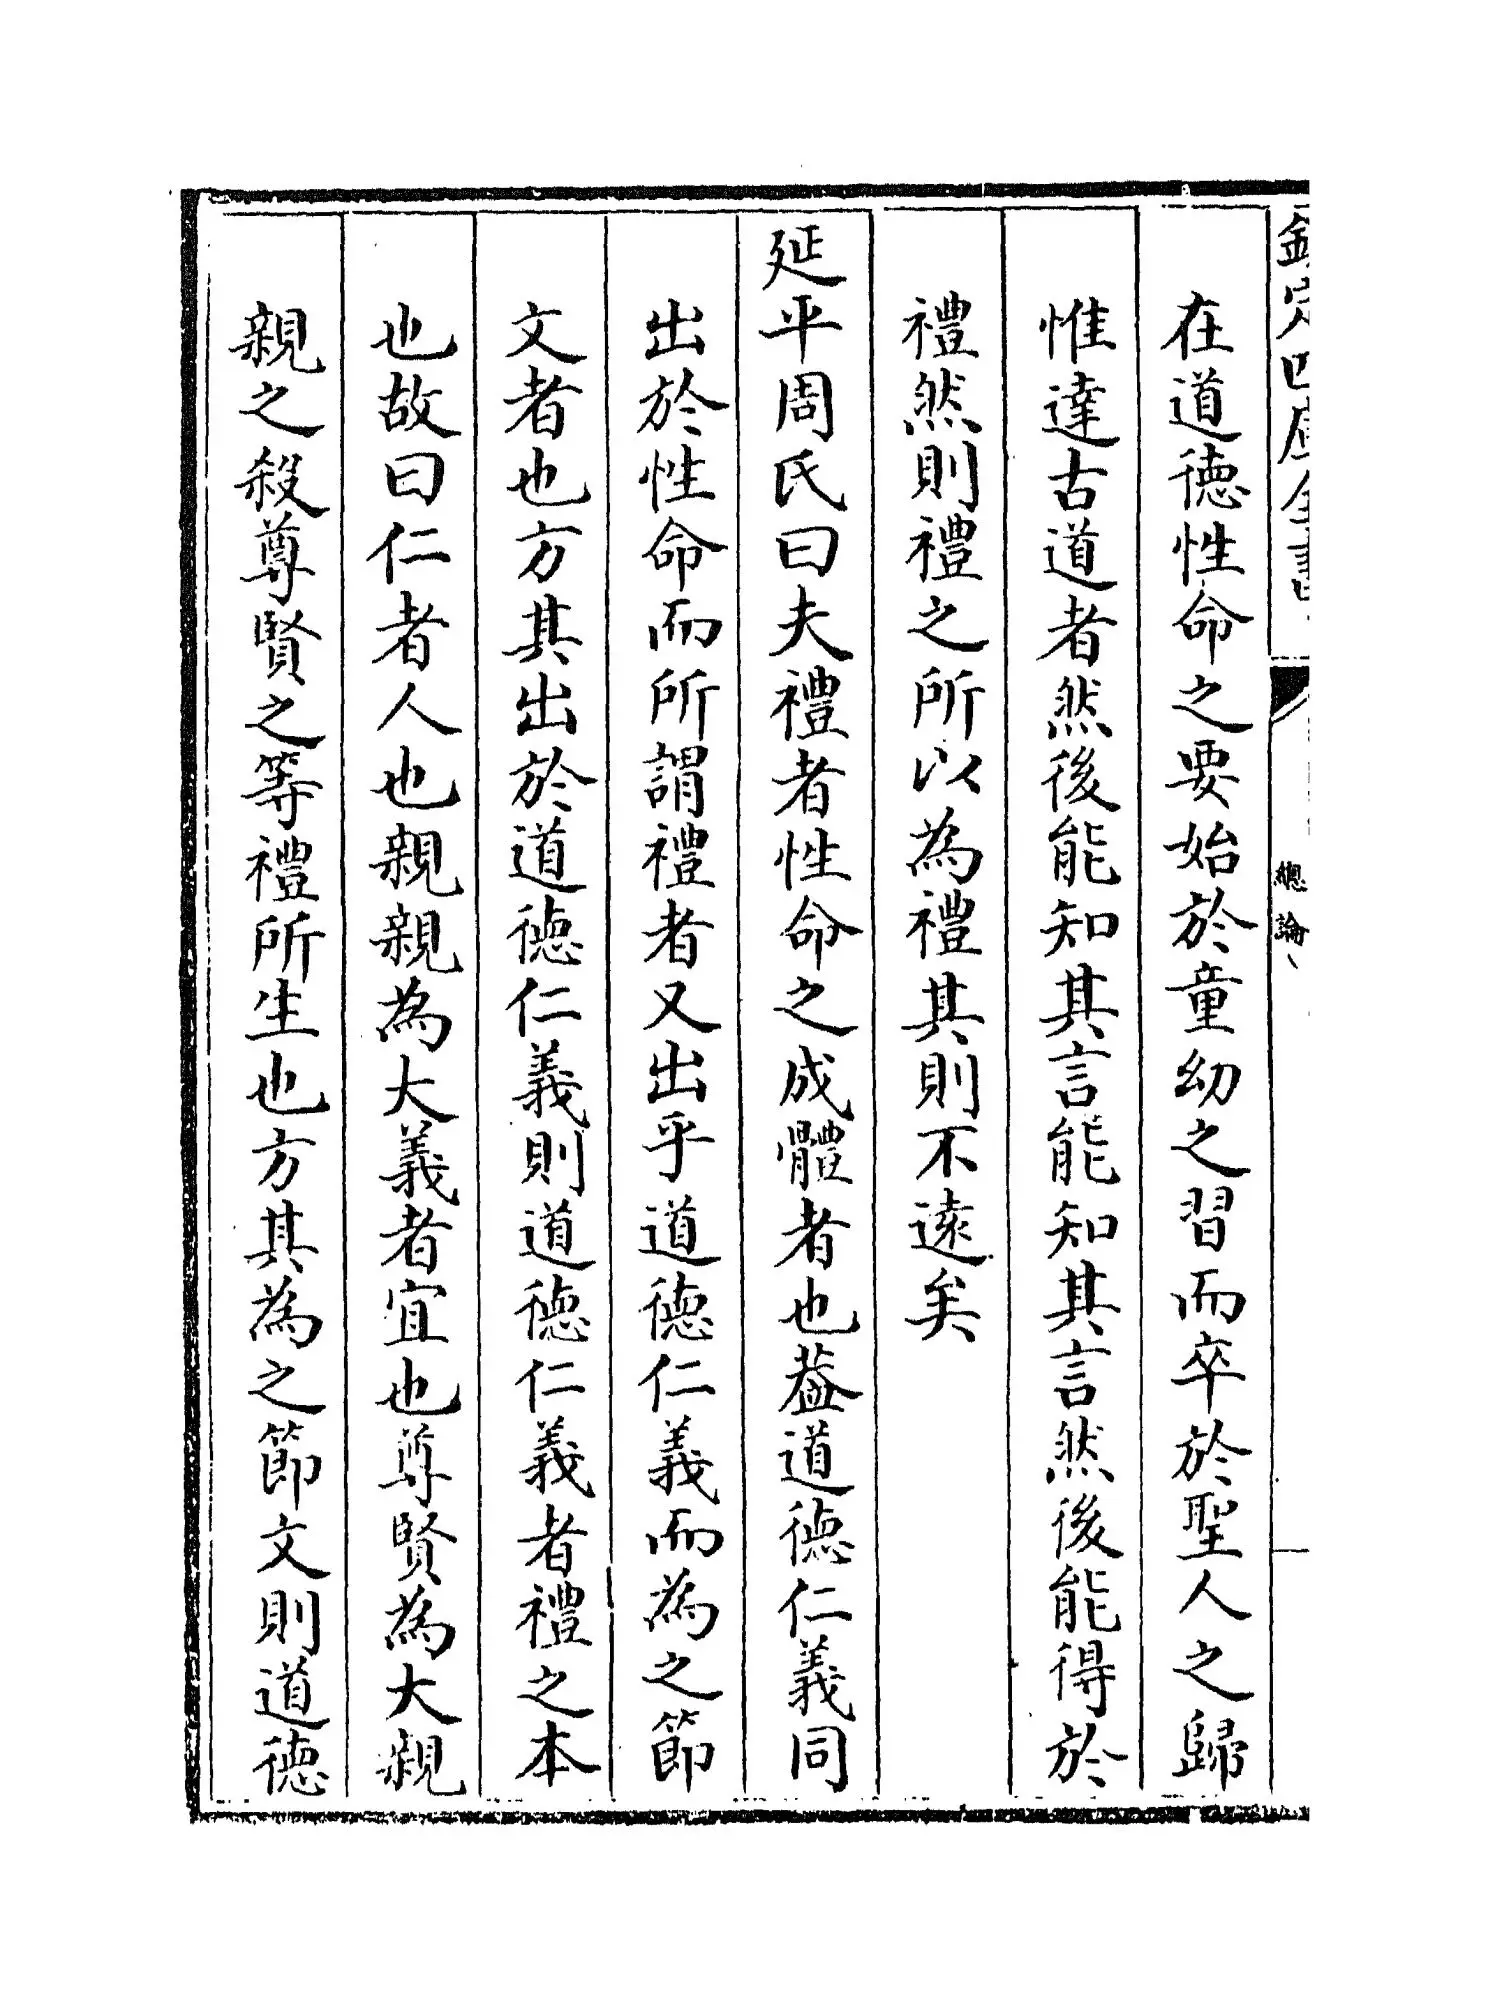 欽定四庫全書
總論
在道德性命之要始於童幼之習而卒於聖人之歸
惟達古道者然後能知其言能知其言然後能得於
禮然則禮之所以為禮其則不遠矣
延平周氏曰夫禮者性命之成體者也葢道德仁義同
出於性命而所謂禮者又出乎道德仁義而為之節
文者也方其出於道德仁義則道德仁義者禮之本
也故曰仁者人也親親為大義者宜也尊賢為大親
親之殺尊賢之等禮所生也方其為之節文則道德